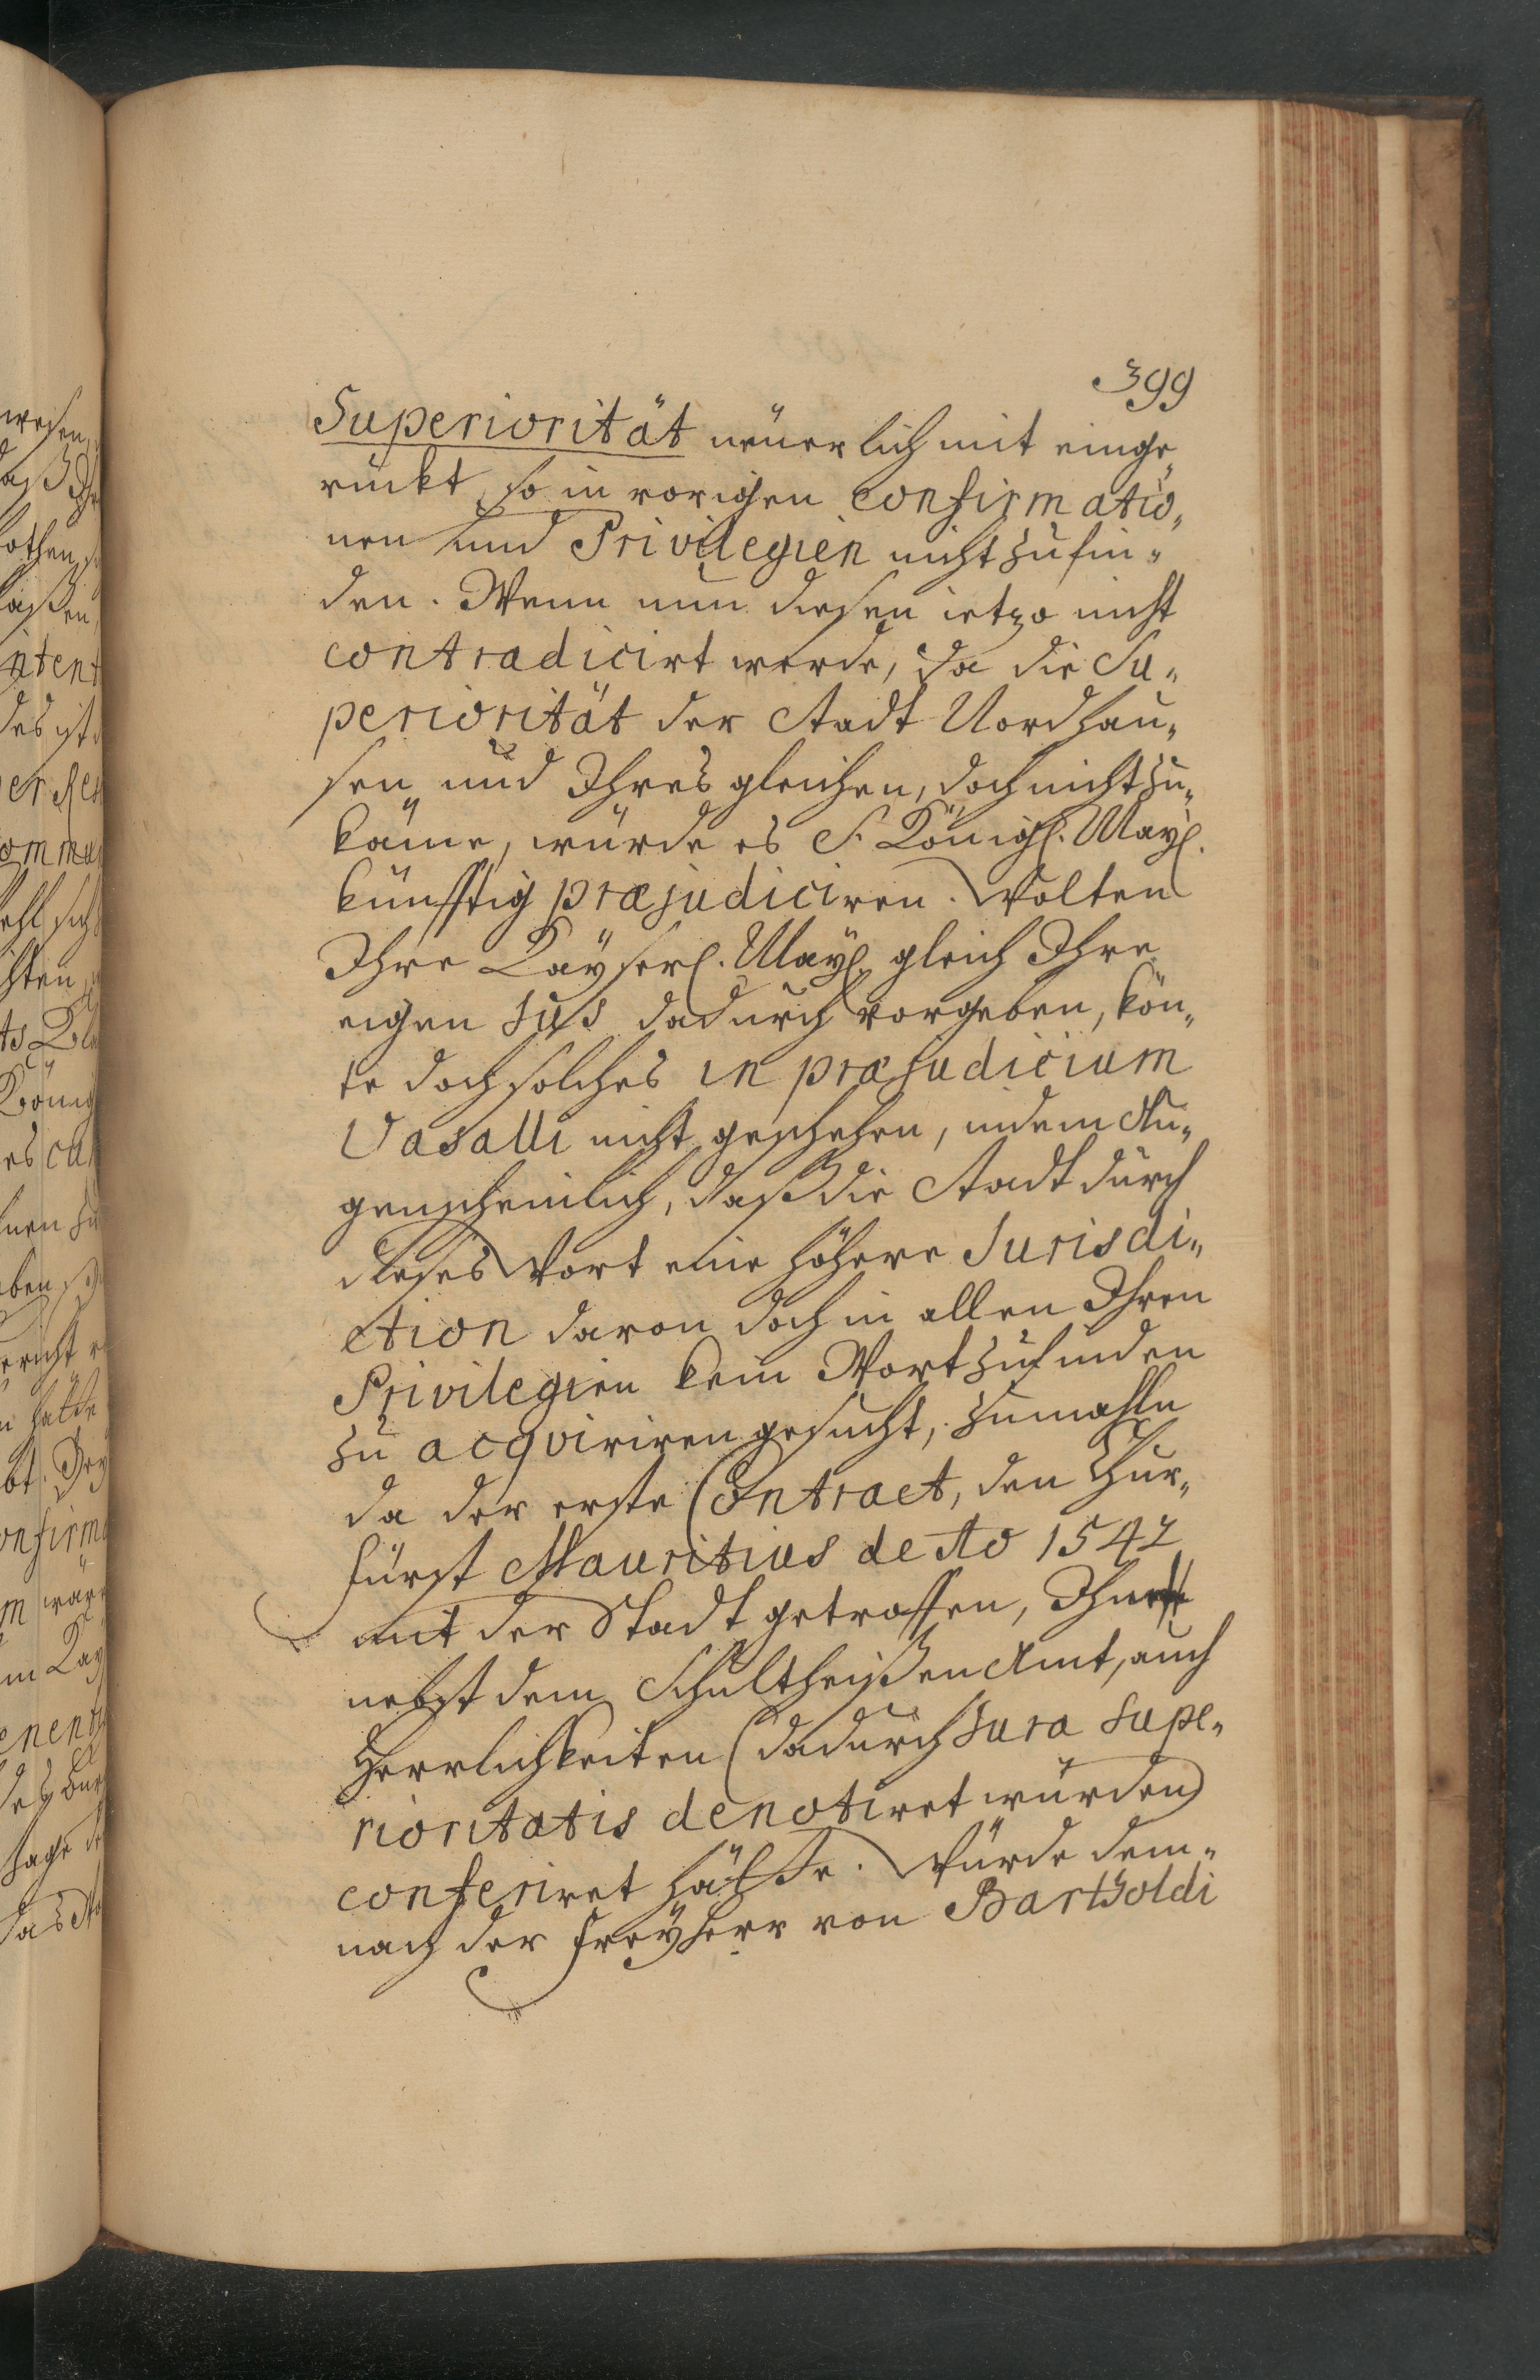 399
Superiorität neüerlich mit einge„
rückt, so in vorigen confirmatio„
nen und Privilegien nicht zu fin„
den. Wenn nun diesen ietzo nicht
contradicirt werde, da die Su„
periorität der Stadt Nordhau„
sen und Ihres gleichen, doch nicht zu„
käme, würde es S. Königl. Mayl.
künfftig præjudiciren. Wolten
Ihre Kayserl. Mayl. gleich Ihre
eigen Jus dadurch vergeben, kön„
te doch solches in præjudicium
Vasalli nicht geschehen, indem Au„
genscheinlich, daß die Stadt durch
dieses Wort eine höhere Jurisdi„
ction davon doch in allen Ihren
Privilegien kein Wort zu finden
zu acqviriren gesucht, zumahln
da der erste Contract, den Chur„
fürst Mauritius de Ao 1542
mit der Stadt getroffen, Ihn
nebst dem Schultheißen Amt, auch
Herrlichkeiten (dadurch Jura supe„
rioritatis denotiret würden)
conferiret hätte. Würde dem„
nach der Freyherr von Bartholdi